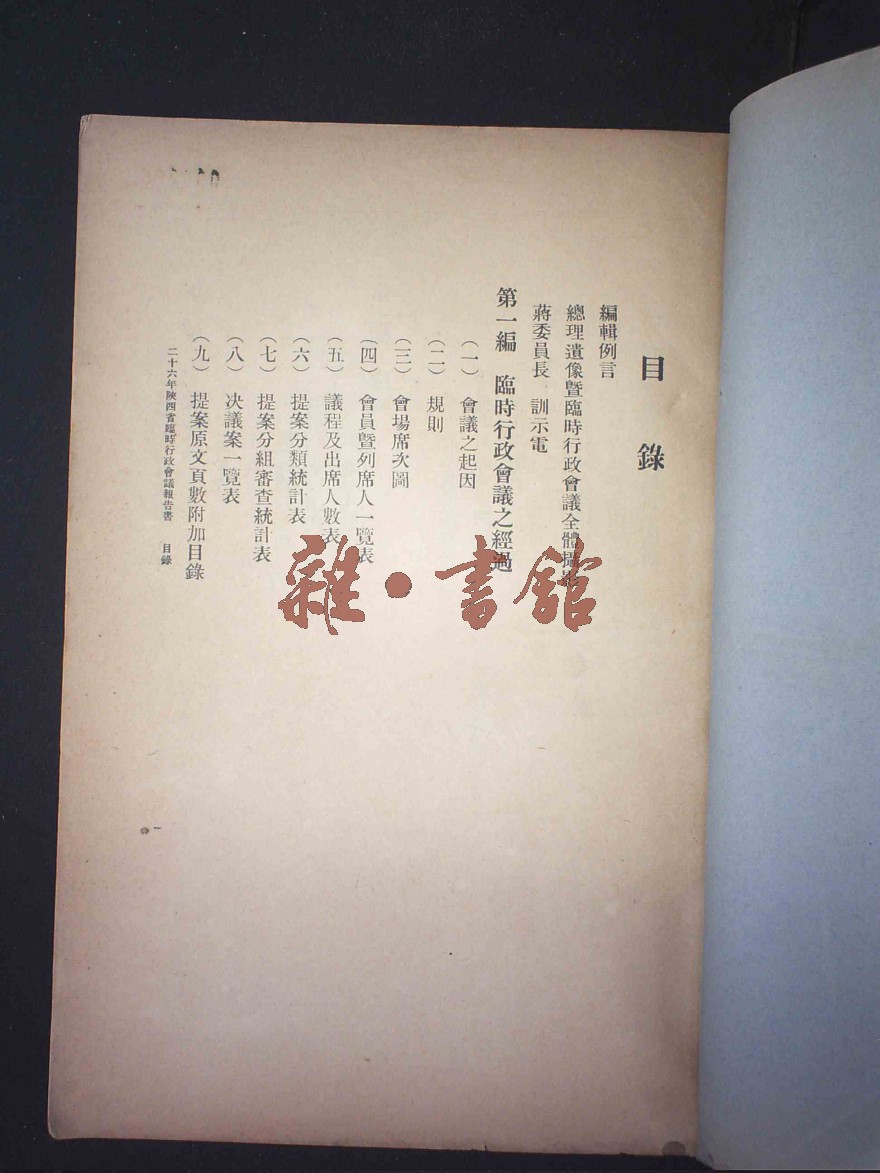 目錄
編輯例言
總理遺像暨臨時行政會議全體攝影
蔣委員長 訓示電
第一編 臨時行政會議之經過
(一) 會議之起因
(二) 規則
(三) 會場席次圖
(四) 會員暨列席人一覽表
(五) 議程及出席人數表
(六) 提案分類統計表
(七) 提案分組審查統計表
(八) 决議案一覽表
(九) 提案原文頁數附加目錄
二十六年陝西省臨時行政會議報告書 目錄
雜·書館